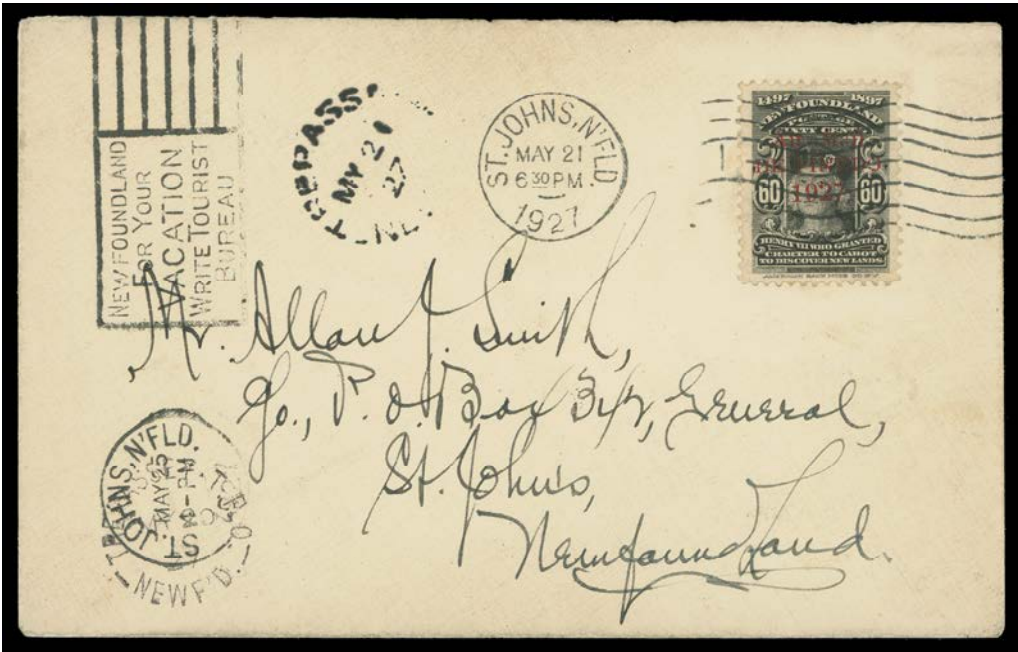 NEWFOUNDLAND
FOR YOUR
VACATION
WRITE TOURIST
BUREAU
TREPASS
MY 21
27
NF
ST. JOHNS, N'FLD
MAY 21
6 30 PM.
1927
1497 1897
NEWFOUNDLAND
POSTAGE
SIXTY CENTS
1927
60 60
HENRY VII WHO GRANTED
CHARTER TO CABOT
TO DISCOVER NEW LANDS
Mr. Allan J. Smith,
Go., P. O. Box General,
St. John's,
Newfoundland.
ST. JOHNS, N'FLD.
MAY 25
PM
NEWF'D.